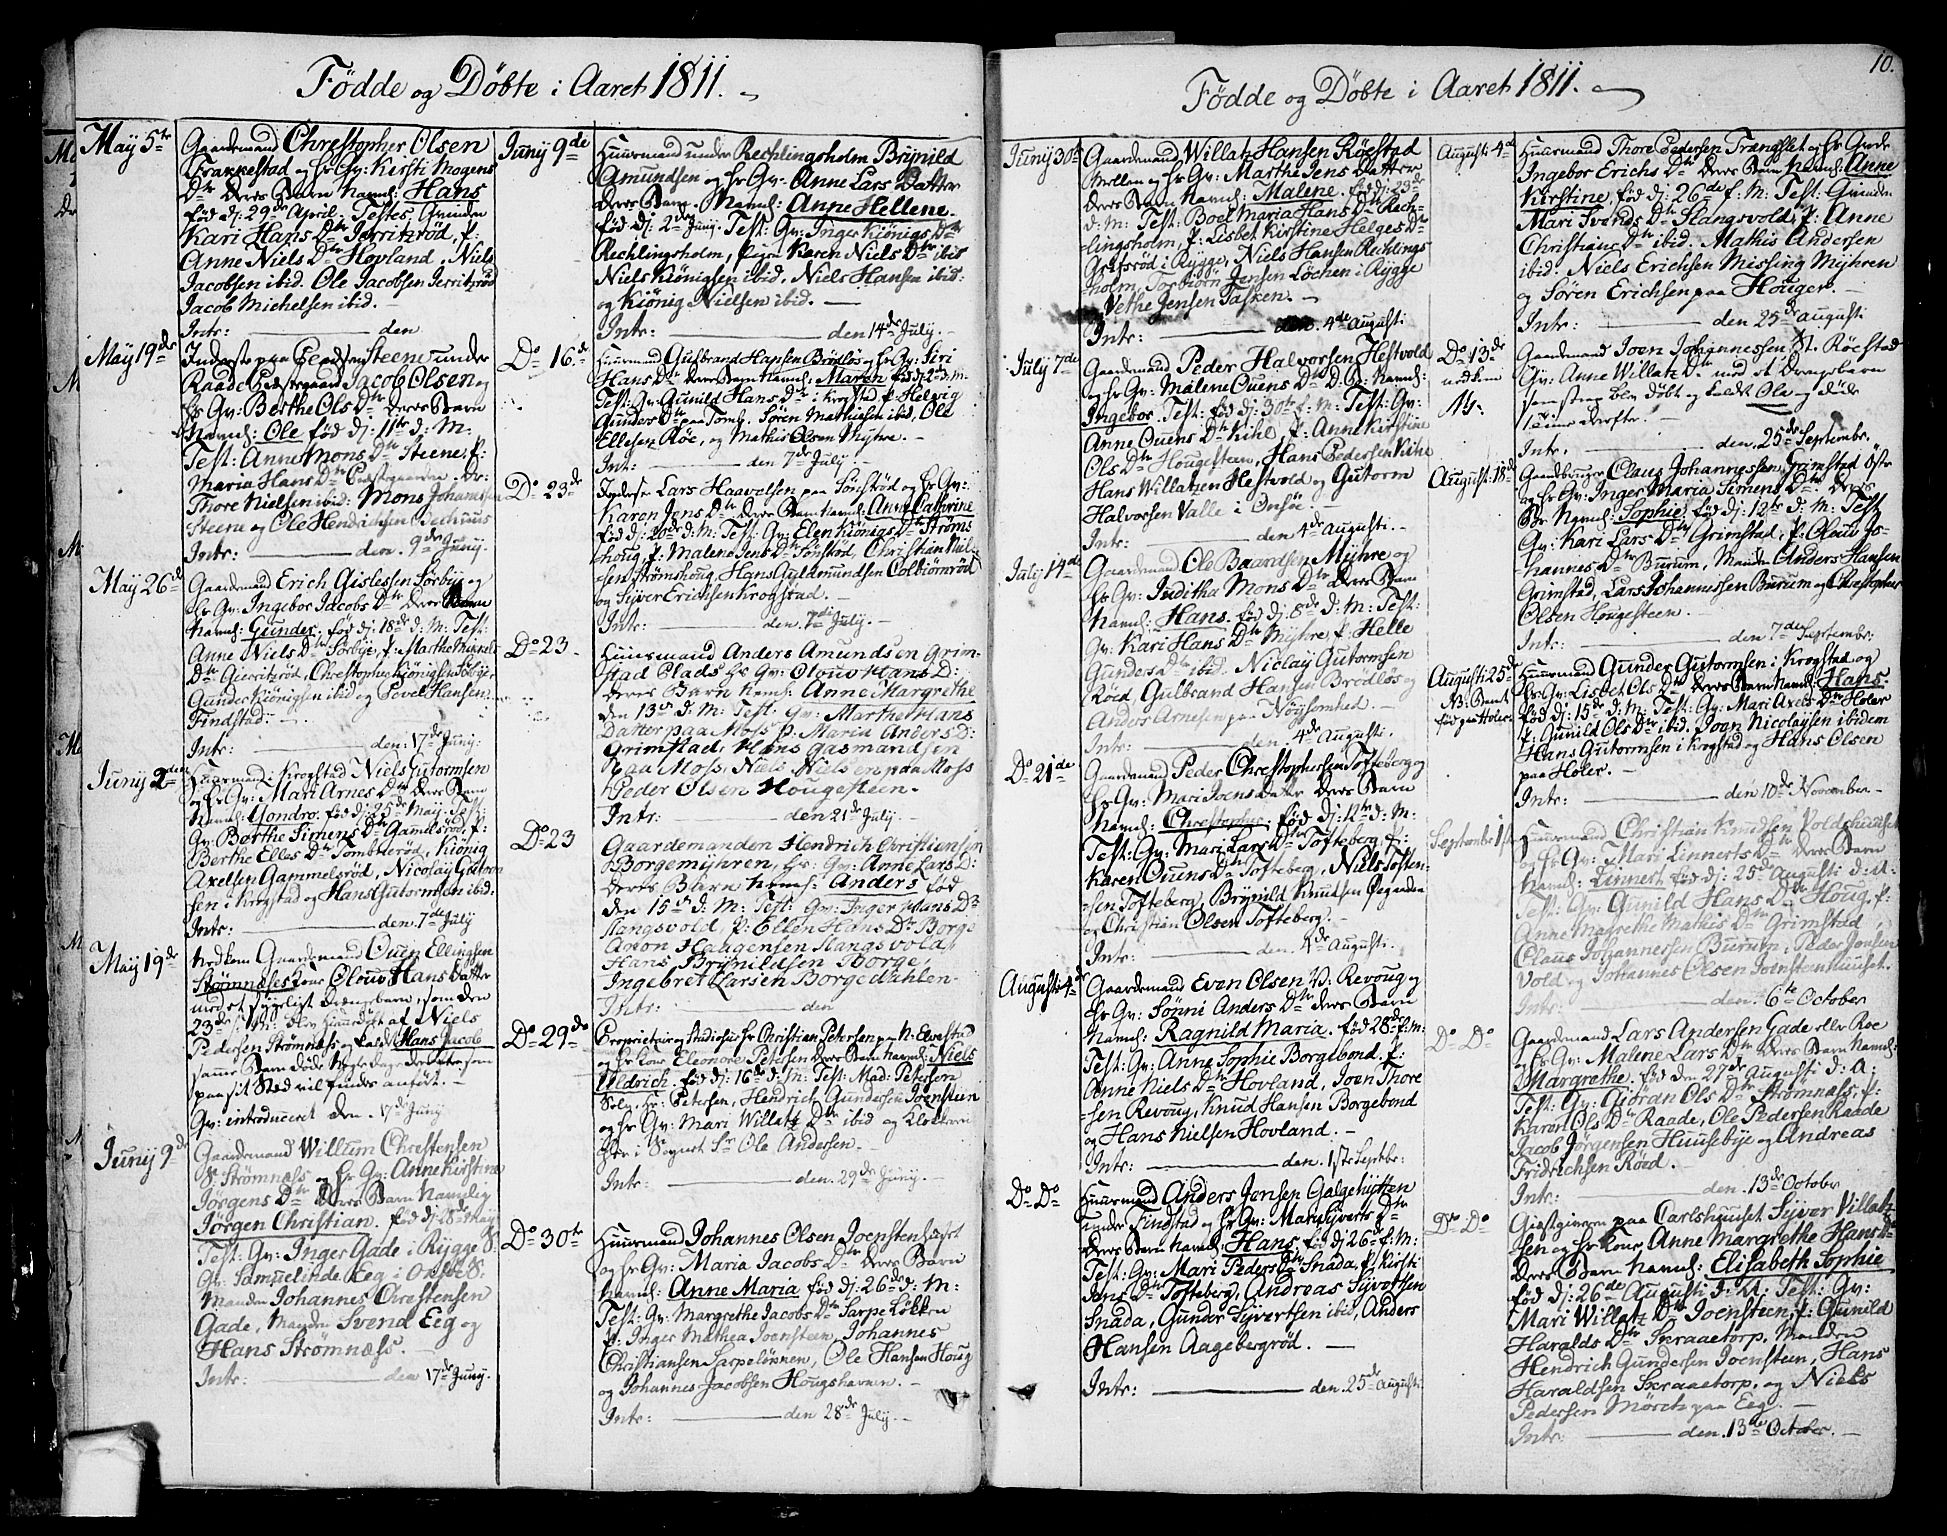 Fødde og Døbte i Aaret 1811.
May 5te
Gaardemand Chrestopher Olsen
Frakkestad og hs Gv: Kirsti Mogens
Dtr Deres Barn Navnl: Hans
Fød dj: 29de April. Testes, Gvinden
Kari Hans Dtr Jerritzrød, P:
Anne Niels Dtr Hovland, Niels
Jacobsen ibid. Ole Jacobsen Jerritzrød
Jacob Michelsen ibid. —
Intr: — den
May 19de
Inderste paa Steene under
Raade Præstegaard Jacob Olsen og
hs Gv: Berthe Ols Dtr Deres Barn
Navnl: Ole Fød dj: 11te d: M:
Test: Anne Mons Dtr Steene, P:
Maria Hans Dtr
Thore Nielsen ibid: Mons Johannesen
Steene og Ole Hendrichsen
Intr: — den. 9de Juny.
May 26de
Gaardemand Erich Gislesen Sørbye og
hs Gv: Ingebor Jacobs Dtr Deres Barn
Navnl: Gunder. Fød dj: 18de d: M: Test:
Anne Niels Dtr Sørbye, P: Marthe
Dtr Gierritzrød, Chrestopher Kiönigsen Sörbye
Gunder Kiönigsen ibid og Povel Hansen
Findstad. —
Intr: — den. 17de Juny.
Juny 2den
Huusmand i Krogstad Niels Gutormsen
og hs Gv: Mari Arnes Dtr Deres Barn
Navnl: Fød dj: 25de May. Test:
Gv: Berthe Simens Dtr Gamelsrød, P:
Berthe Elles Dtr Kiönig
Axelsen Gammelsrød, Nicolay Gutorm-
sen i Krogstad og Hans Gutormsen ibid:
Intr: — den. 7de July
May 19de
Nedkom Gaardemand Ouen Ellingsen
Strømnæses Kone Olouv Hans Datter
med et sygeligt Drængebarn, som den
23de s: M: blev hiemdøbt af Niels
Pedersen Strømnæss og kaldt Hans Jacob
samme Barn døde Nogle Dage derefter som
paa sit Sted vil findes anført. —
Gv: introduceret den. 17de Juny
Juny 9de
Gaardemand Willum Chrestensen
S: Strømnæss og hs Gv: Anne Kirstine
Jörgens Dtr Deres Barn Navnlig
Jörgen Christian. Fød dj: 28de May
Test: Gv: Inger Gade i Rygge S:
Gv: Samuelinde Eeg i Onsöe S:
Manden Johannes Chrestensen
Gade, Manden Svend Eeg og
Hans Strømnæss. —
Intr: — den 17de Juny.
Juny 9de
Huusmand under Rechlingsholm Brynild
Amundsen og hs Gv: Anne Lars Datter
Deres Barn. Navnl: Anne Hellene.
Fød dj: 2den Juny. Test: Gv: Inger Kiönigs Dtr
Rechlingsholm, Pigen Karen Niels Dtr ibid
Niels Kiönigsen ibid, Niels Hansen ibid:
og Kiönig Nielsen ibid. —
Intr: — den 14de July. —
Do 16de
Huusmand Gulbrand Hansen Brödløs og hs Gv: Siri
Hans Dtr Deres Barn Navnl: Maren Fød dj: 2de d: M:
Test: Gv: Gunild Hans Dtr i Krogstad, P: Helvig
Gunders Dtr paa Tomb. Sören Mathiesen ibid, Ole
Ellefsen Röe, og Mathis Olsen Myhre. —
Int: — den 7de July —
Do 23de
Inderste Lars Haavelsen paa Sönsröd og hs Gv:
Karen Jens Dtr Deres Barn Navnl: Anne Cathrine
Fød dj: 20de d: M: Test: Gv: Elen Kiönigs Dtr Ströms
houg, P: Malene Jens Dtr Sönsröd, Christian Niel-
sen Strömshoug, Hans Gyldmundsen Colbiörnröd
og Syver Erichsen Krogstad. —
Intr: — den. 7de July. —
Do 23.
Huusmand Anders Amundsen Grim-
stad Plads hs Gv: Olouv Hans D:
deres Barn Navnl: Anne Margrethe
den 13de d: M: Test: Gv: Marthe Hans
Datter paa Moss P: Maria Anders D:
Grimstad, Hans Gasmandsen
paa Moss, Niels Nielsen paa Moss
Peder Olsen Hougesteen. —
Intr: — den 21de July. —
Do 23
Gaardemanden Hendrich Christiansen
Borgemyhren, hs: Gv: Anne Lars D:
deres Barn Navnl: Anders Fød
den 15de d: M: Test: Gv: Inger Hans Dr
Slangsvold, P: Ellen Hans Dr Borge
Aron Haagensen Slangsvold,
Hans Brynildsen Borge,
Ingebret Larsen Borgedahlen. —
Intr: — den
Do 29de
Proprietair og Studiosus Hr Christian Petersen paa N: Elvestad
og hs Kone Eleonore Petersen Deres Barn Navnl: Niels
Uldrich. Fød dj: 16de d: M: Test: Mad: Petersen
Solg. Hr: Petersen, Hendrich Gundersen Joensteen
og hs Gv: Mari Willatz Dtr ibid og Klokkeren
her i Sognet Sr Ole Andersen. —
Intr: — den. 29de Juny. —
Do 30te
Huusmand Johannes Olsen Joensteen
og hs Gv: Maria Jacobs Dtr Deres Barn
Navnl: Anne Maria Fød dj: 26de d: M:
Test: Gv: Margrethe Jacobs Dtr Sarpe Løkken
P: Inger Mathea Joensteen, Johannes
Christiansen Sarpelönnen, Ole Hansen Houg
og Johannes Jacobsen Hougshavnen. —
Intr: — den 28de July. —
Fødde og Døbte i Aaret 1811. —
10.
Juny 30te
Gaardemand Willatz Hansen Röestad
Mellen og hs Gv: Marthe Jens Datter
Deres Barn Navnl: Malene. Fød dj: 23de
d: M: Test: Boel Maria Hans Dtr Rech-
lingsholm, P: Lisbet Kirstine Helges Dtr
Grefsröd i Rygge, Niels Hansen Rechlings
holm, Torbiörn Jensen Löchen i Rygge
Vethe Jensen Tasken. —
Intr: — den. 4de Augusti
July 7de
Gaardemand Peder Halvorsen Hestvold
og hs Gv: Malene Ouens Dtr D: B: Navnl:
Ingebor. Test: Fød dj: 30te f: M: Test: Gv:
Anne Ouens Dtr Kihl, P: Anne Kirstine
Ols Dtr Hougesteen, Hans Pedersen Kihl
Hans Willatzen Hestvold og Gutorm
Halvorsen Valle i Onsöe. —
Intr: — den. 4de Augusti. —
July 14de
Gaardemand Ole Baardsen Myhre og
hs Gv: Juditha Mons Dtr Deres Barn
Navnl: Hans. Fød dj: 8de d: M: Test:
Gv: Kari Hans Dtr Myhre, P: Helle
Gunders Dtr ibid. Niclay Gutormsen
Röed Gulbrand Hansen Brödløs og
Anders Arnesen paa Nöysomhed. —
Intr: — den. 4de Augusti. —
Do 21de
Gaardemand Peder Chrestophersen Tofteberg og
hs Gv: Mari Joens Datter Deres Barn
Navnl: Chrestopher. Fød dj: 12te d: M:
Test: Gv: Mari Lars Dtr Tofteberg, P:
Karen Ouens Dtr Tofteberg, Niels Tosten-
sen Tofteberg, Brynild Knudsen Ögaarden
og Christian Olsen Tofteberg. —
Intr: — den. 4de Augusti. —
Augusti 4de
Gaardemand Even Olsen V. Revoug og
hs Gv: Sönni Anders Dtr Deres Barn
Navnl: Ragnild Maria. Fød 28de f: M:
Test: Gv: Anne Sophie Borgebond. P:
Anne Niels Dtr Hovland, Joen Thore
sen Revoug, Knud Hansen Borgebond
og Hans Nielsen Hovland. —
Intr: — den. 1ste Septbr:
Do Do
Huusmand Anders Jonsen Galgehytten
under Findstad og hs Gv: Mary Syverts Dtr
Deres Barn Navnl: Hans. Fød dj: 26de f: M:
Test: Gv: Mari Peders Dtr Snada, P: Kirsti
Jans Dtr Tofteberg, Andreas Syvertsen
Snada, Gunder Syvertsen ibid, Anders
Hansen Aagebergröd. —
Intr: — den. 25de Augusti
Augusti 4de
Huusmand Thore Pedersen Trangslet og hs Gv
Ingebor Erichs Dtr Deres Barn Navnl: Anne
Kirstine, Fød dj: 26de f. M: Test: Gvinden
Mari Svends Dtr Slangsvold, P: Anne
Christians Dtr ibid. Mathis Andersen
ibid. Niels Erichsen Missing Myhren
og Sören Erichsen paa Houger. —
Intr: — den 25de Augusti
Do 13de
nedkom
Gaardemand Joen Johannessen St. Röestad
Gv: Anne Willatz Dtr med et Drengebarn
som strax blev døbt og kaldt Ole og døde
1 Time derefter. —
Intr. — den. 25de Septembr.
Augusti 18de
Gaardbruger Claus Johannessen Grimstad Østr
og hs Gv: Inger Maria Simens Dtr Deres
Br Navnl: Sophie. Fød dj: 12te d: M: Test:
Gv: Kari Lars Dtr Grimstad, P: Olouv Jo-
hannes Dtr Burum, Manden Anders Hansen
Grimstad, Lars Johannessen Burum og Chrestopher
Olsen Hougesteen. —
Intr: — den. 7de Septembr:
Augusti 25de
NB: Barnet
født paa Holer.
Huusmand Gunder Gutormsen i Krogstad og
hs Gv: Lisbet Ols Dtr Deres Barn Navnl: Hans
Fød dj: 15de d: M: Test: Gv: Mari Axels Dtr Holer
P: Gunild Ols Dtr ibid. Joen Nicolaysen ibidem
Hans Gutormsen i Krogstad og Hans Olsen
paa Holer. —
Intr: — den 10de November. —
September 1ste
Huusmand Christian Knudsen Voldshuuset
og hs Gv: Mari Linnerts Dtr Deres Barn
Navnl: Linnert Fød dj: 25de Augusti d: A:
Test: Gv: Gunild Hans Dtr Houg, P:
Anne Magrethe Mathis Dtr Grimstad,
Claus Johannessen Burum, Peder Jonsen
Vold og Johannes Olsen Joensteenhuuset.
Intr: — den. 6te October
Do Do
Gaardemand Lars Andersen Gade eller Roe
og hs Gv: Malene Lars Dtr Deres Barn Navnl:
Margrethe. Fød den 27de Augusti d: A:
Test: Gv: Giöran Ols Dtr Strömnæss, P:
Karen Ols Dtr Raade, Ole Pedersen Raade
Jacob Jörgensen Huusebye og Andreas
Fridrichsen Röed.
Intr: — den. 13de October
Do Do
Giæstgiveren paa Carlshuuset Syver Villatz
sen og hs Kone Anne Margrethe Hans Dtr
Deres Barn Navnl: Elisabeth Sophie
Fød dj: 26de Augusti d: A: Test: Gv:
Mari Willatz Dtr Joensteen, P: Gunild
Haralds Dtr Skraaetorp, Manden
Hendrich Gundersen Joensteen, Hans
Haraldsen Skraaetorp, og Niels
Pedersen Mörch paa Eeg. —
Intr: — den. 13de October. —